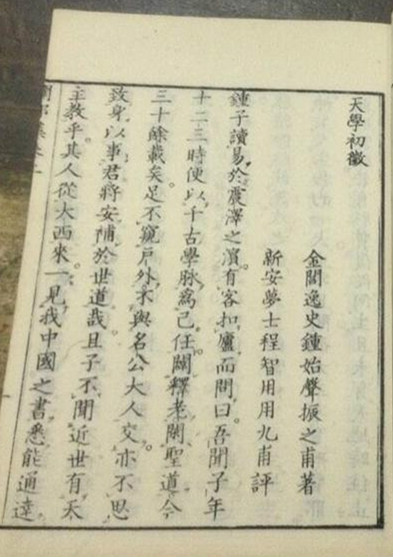 天學初徵
金閶逸史鍾始聲振之甫著
新安夢士程智用用九甫評
鍾子讀易於震澤之濱有客扣廬而問曰吾聞子年
十二三時便以千古學脉爲己任闢釋老閑聖道今
三十餘載矣足不窺戶外不與名公大人交亦不思
致身以事君將安補於世道哉且子不聞近世有天
主教乎其人從大西來一見我中國之書悉能通達